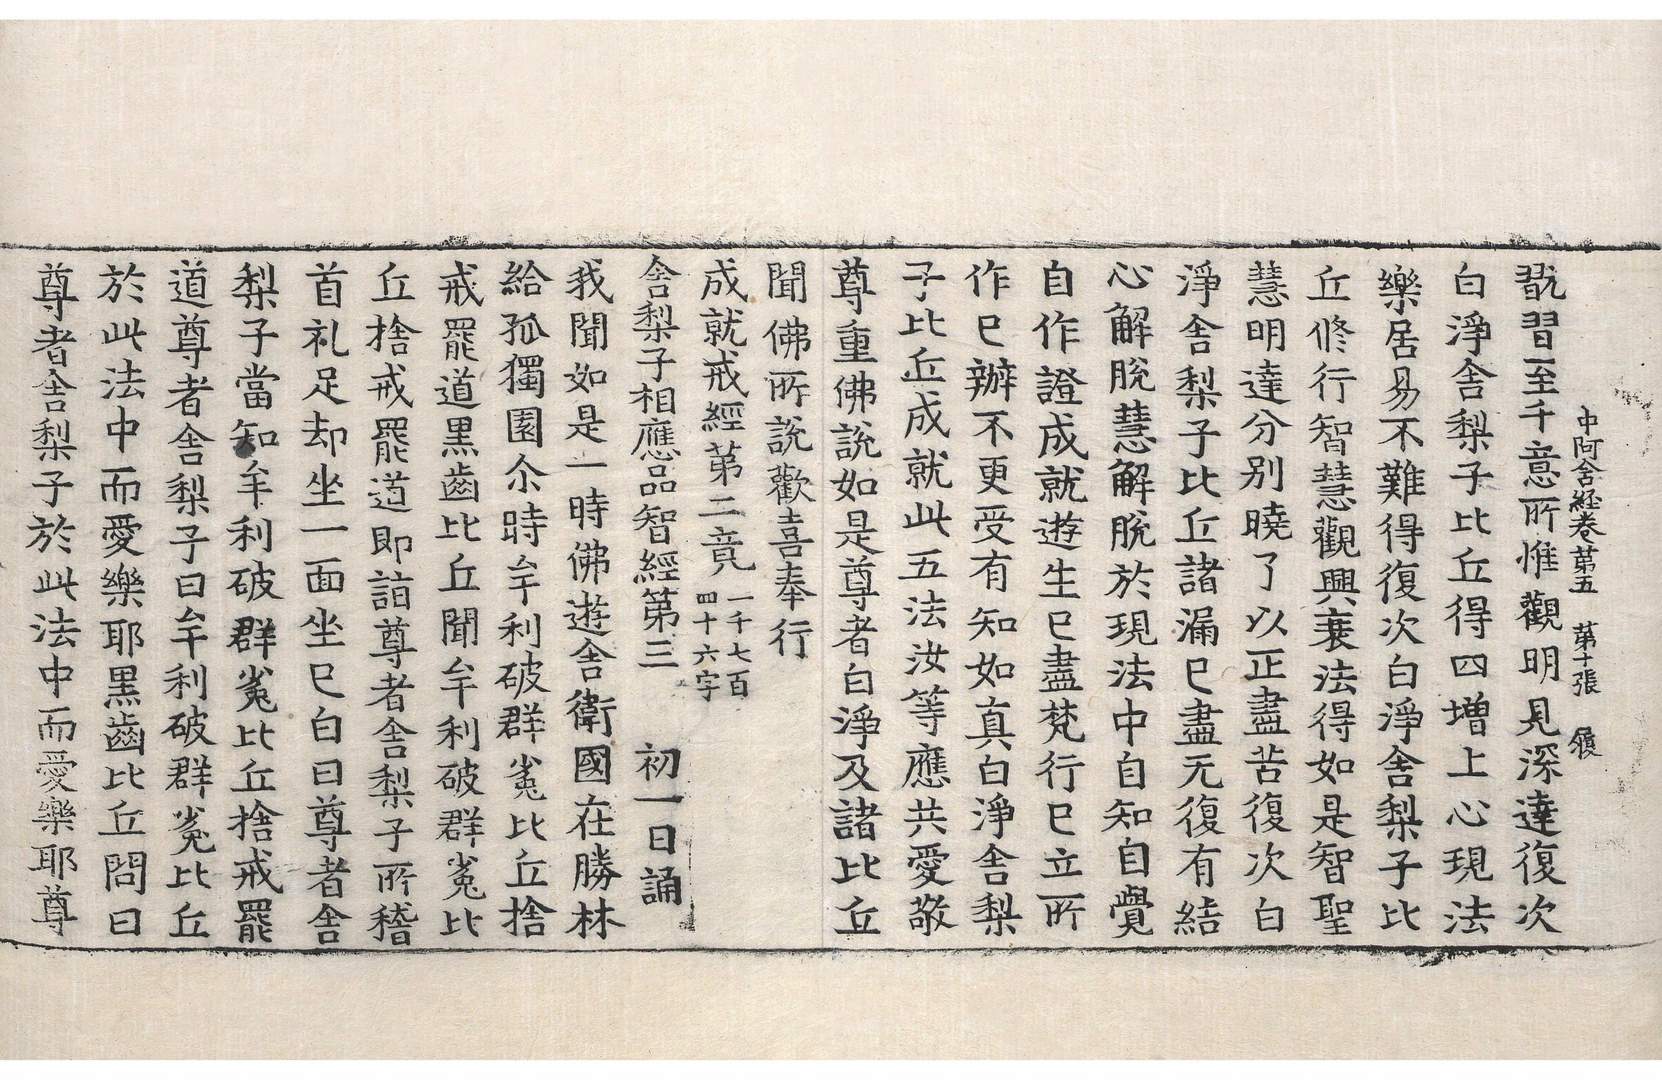 中阿含経卷第五　第十張　履
翫習至千意所惟觀明見深達復次
白淨舍梨子比丘得四增上心現法
樂居易不難得復次白淨舍梨子比
丘修行智慧觀興衰法得如是智聖
慧明達分別曉了以正盡苦復次白
淨舍梨子比丘諸漏已盡无復有結
心解脫慧解脫於現法中自知自覺
自作證成就遊生已盡梵行已立所
作已辦不更受有知如真白淨舍梨
子比丘成就此五法汝等應共愛敬
尊重佛說如是尊者白淨及諸比丘
聞佛所說歡喜奉行
成就戒經第二竟一千七百四十六字
舍梨子相應品智經第三　初一日誦
我聞如是一時佛遊舍衛國在勝林
給孤獨園尒時牟利破群㝹比丘捨
戒罷道黑齒比丘聞牟利破群㝹比
丘捨戒罷道即詣尊者舍梨子所稽
首礼足却坐一面坐已白曰尊者舍
梨子當知牟利破群㝹比丘捨戒罷
道尊者舍梨子曰牟利破群㝹比丘
於此法中而愛樂耶黑齒比丘問曰
尊者舍梨子於此法中而愛樂耶尊